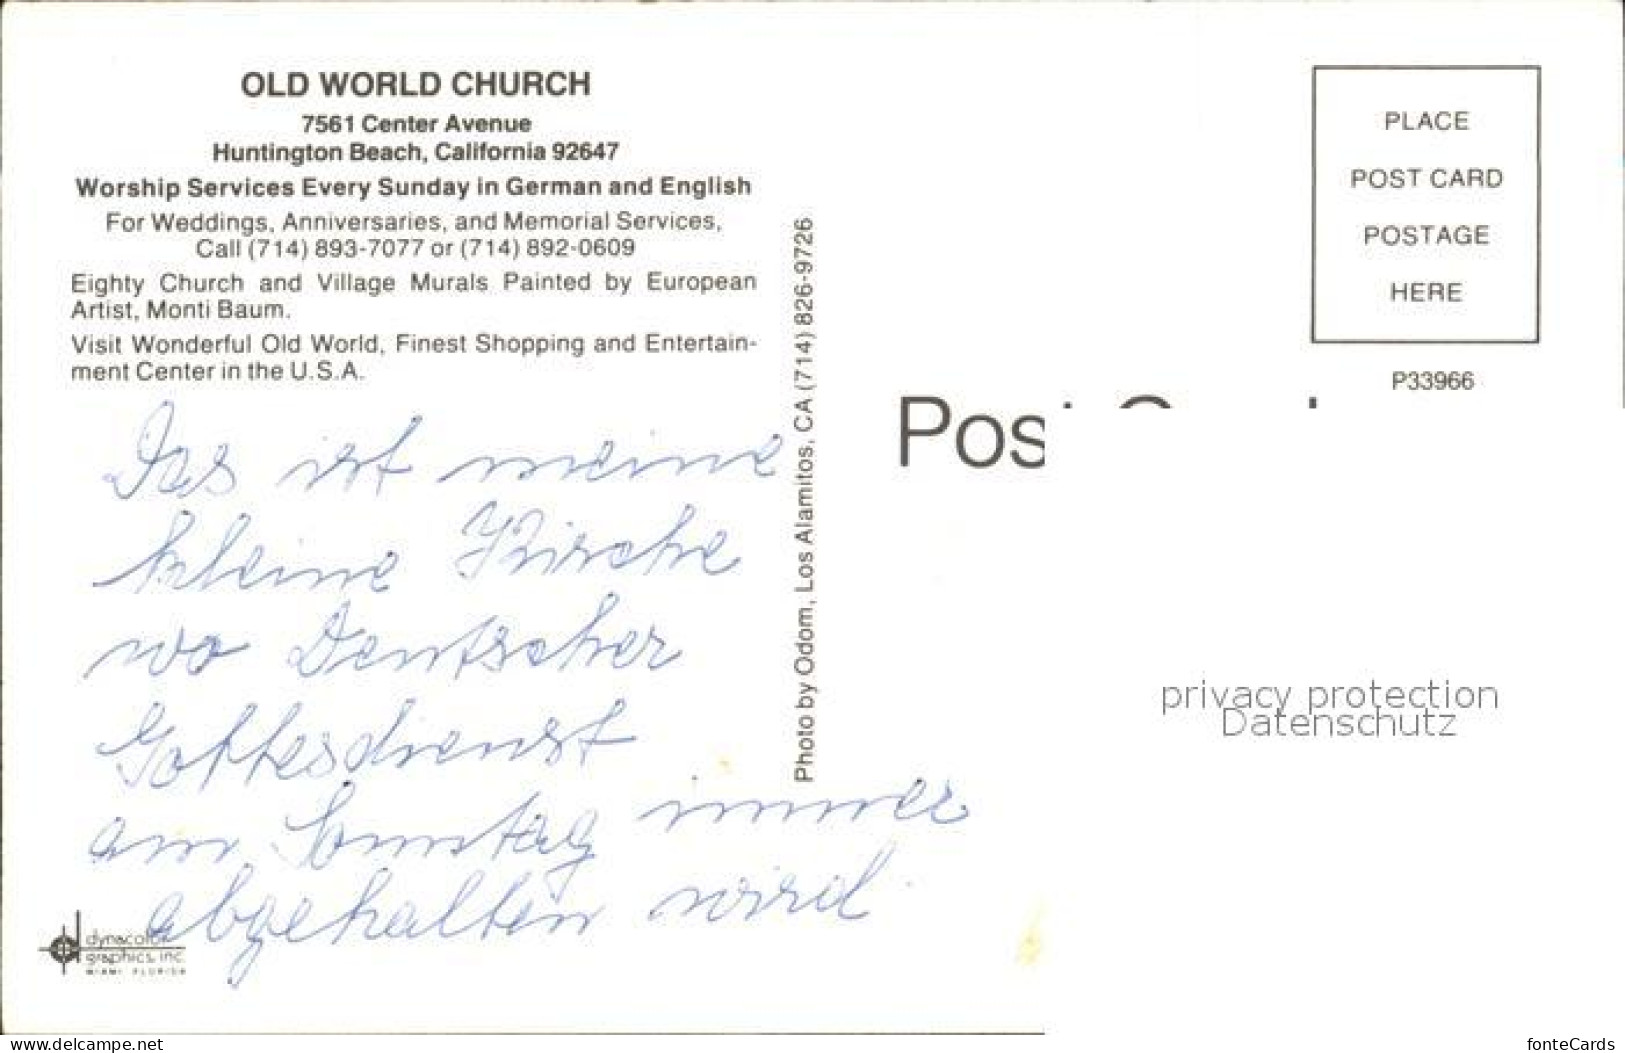 OLD WORLD CHURCH
7561 Center Avenue
Huntington Beach, California 92647
Worship Services Every Sunday in German and English
For Weddings, Anniversaries, and Memorial Services,
Call (714) 893-7077 or (714) 892-0609
Eighty Church and Village Murals Painted by European
Artist, Monti Baum.
Visit Wonderful Old World, Finest Shopping and Entertain-
ment Center in the U.S.A.
Das ist meine
kleine Kirche
wo Deutscher
Gottesdienst
am Sonntag immer
abgehalten wird
dynacolor
graphics, inc.
MIAMI FLORIDA
Photo by Odom, Los Alamitos, CA (714) 826-9726
PLACE
POST CARD
POSTAGE
HERE
P33966
Pos
privacy protection
Datenschutz
www.delcampe.net
fonteCards